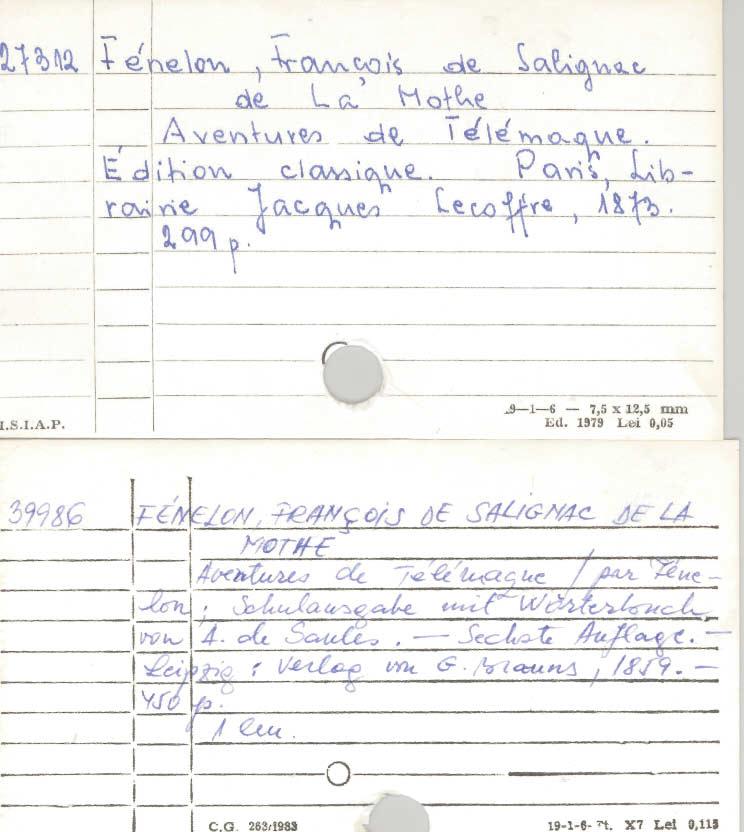 27312 Fénelon, François de Salignac
de La Mothe
Aventures de Télémaque.
Édition classique. Paris, Lib-
rairie Jacques Lecoffre, 1873.
299 p.
I.S.I.A.P.
9—1—6 — 7,5 x 12,5 mm
Ed. 1979 Lei 0,05
39986 FÉNELON, FRANÇOIS DE SALIGNAC DE LA
MOTHE
Aventures de Télémaque / par Féne-
lon; Schulausgabe mit Wörterbuch
von A. de Saules. — Sechste Auflage. —
Leipzig: Verlag von G. Brauns, 1859. —
450 p.
1 em.
C.G. 263/1983
19-1-6- X7 Lei 0,115